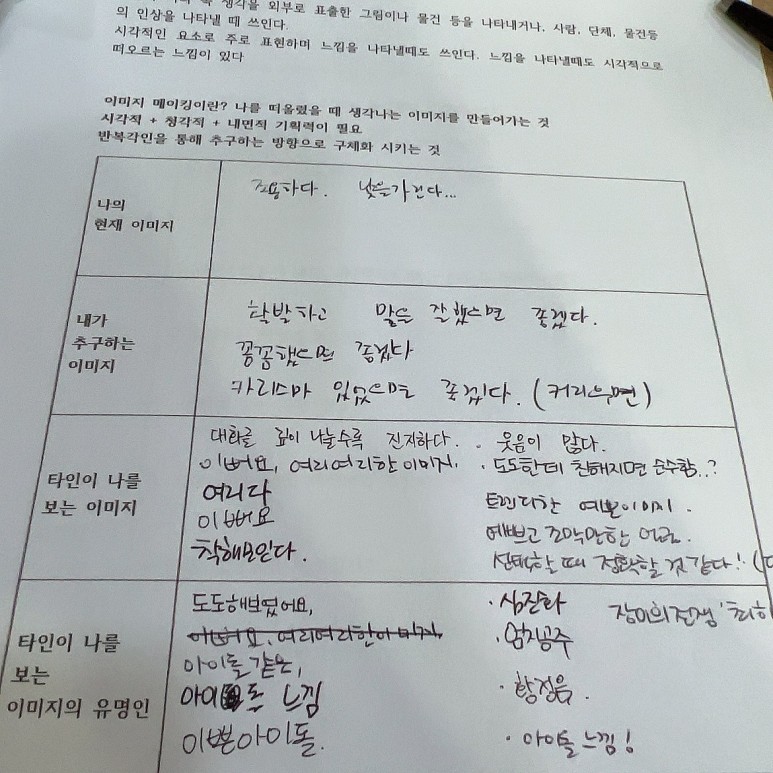 생각을 외부로 표출한 그림이나 물건 등을 나타내거나, 사람, 단체, 물건등
의 인상을 나타낼 때 쓰인다.
시각적인 요소로 주로 표현하며 느낌을 나타낼때도 쓰인다. 느낌을 나타낼때도 시각적으로
떠오르는 느낌이 있다
이미지 메이킹이란? 나를 떠올렸을 때 생각나는 이미지를 만들어가는 것
시각적 + 청각적 + 내면적 기획력이 필요
반복각인을 통해 추구하는 방향으로 구체화 시키는 것
나의
현재 이미지
조용하다. 낯을가린다...
내가
추구하는
이미지
활발하고 말을 잘했으면 좋겠다.
꼼꼼했으면 좋겠다
카리스마 있었으면 좋겠다. (커리우먼)
타인이 나를
보는 이미지
대화를 깊이 나눌수록 진지하다.
이뻐요, 여리여리한 이미지.
여리다
이뻐요
착해보인다.
· 웃음이 많다.
· 도도한데 친해지면 순수함..?
트렌디한 예쁜이미지.
예쁘고 조막만한 얼굴.
선택할 때 정확할 것 같다!
타인이 나를
보는
이미지의 유명인
도도해보였어요,
이뻐요, 여리여리한이미지
아이돌 같은,
아이돌 느낌
이쁜아이돌.
· 심진화
장미의전쟁
· 엄지공주
· 황정음.
· 아이돌 느낌!